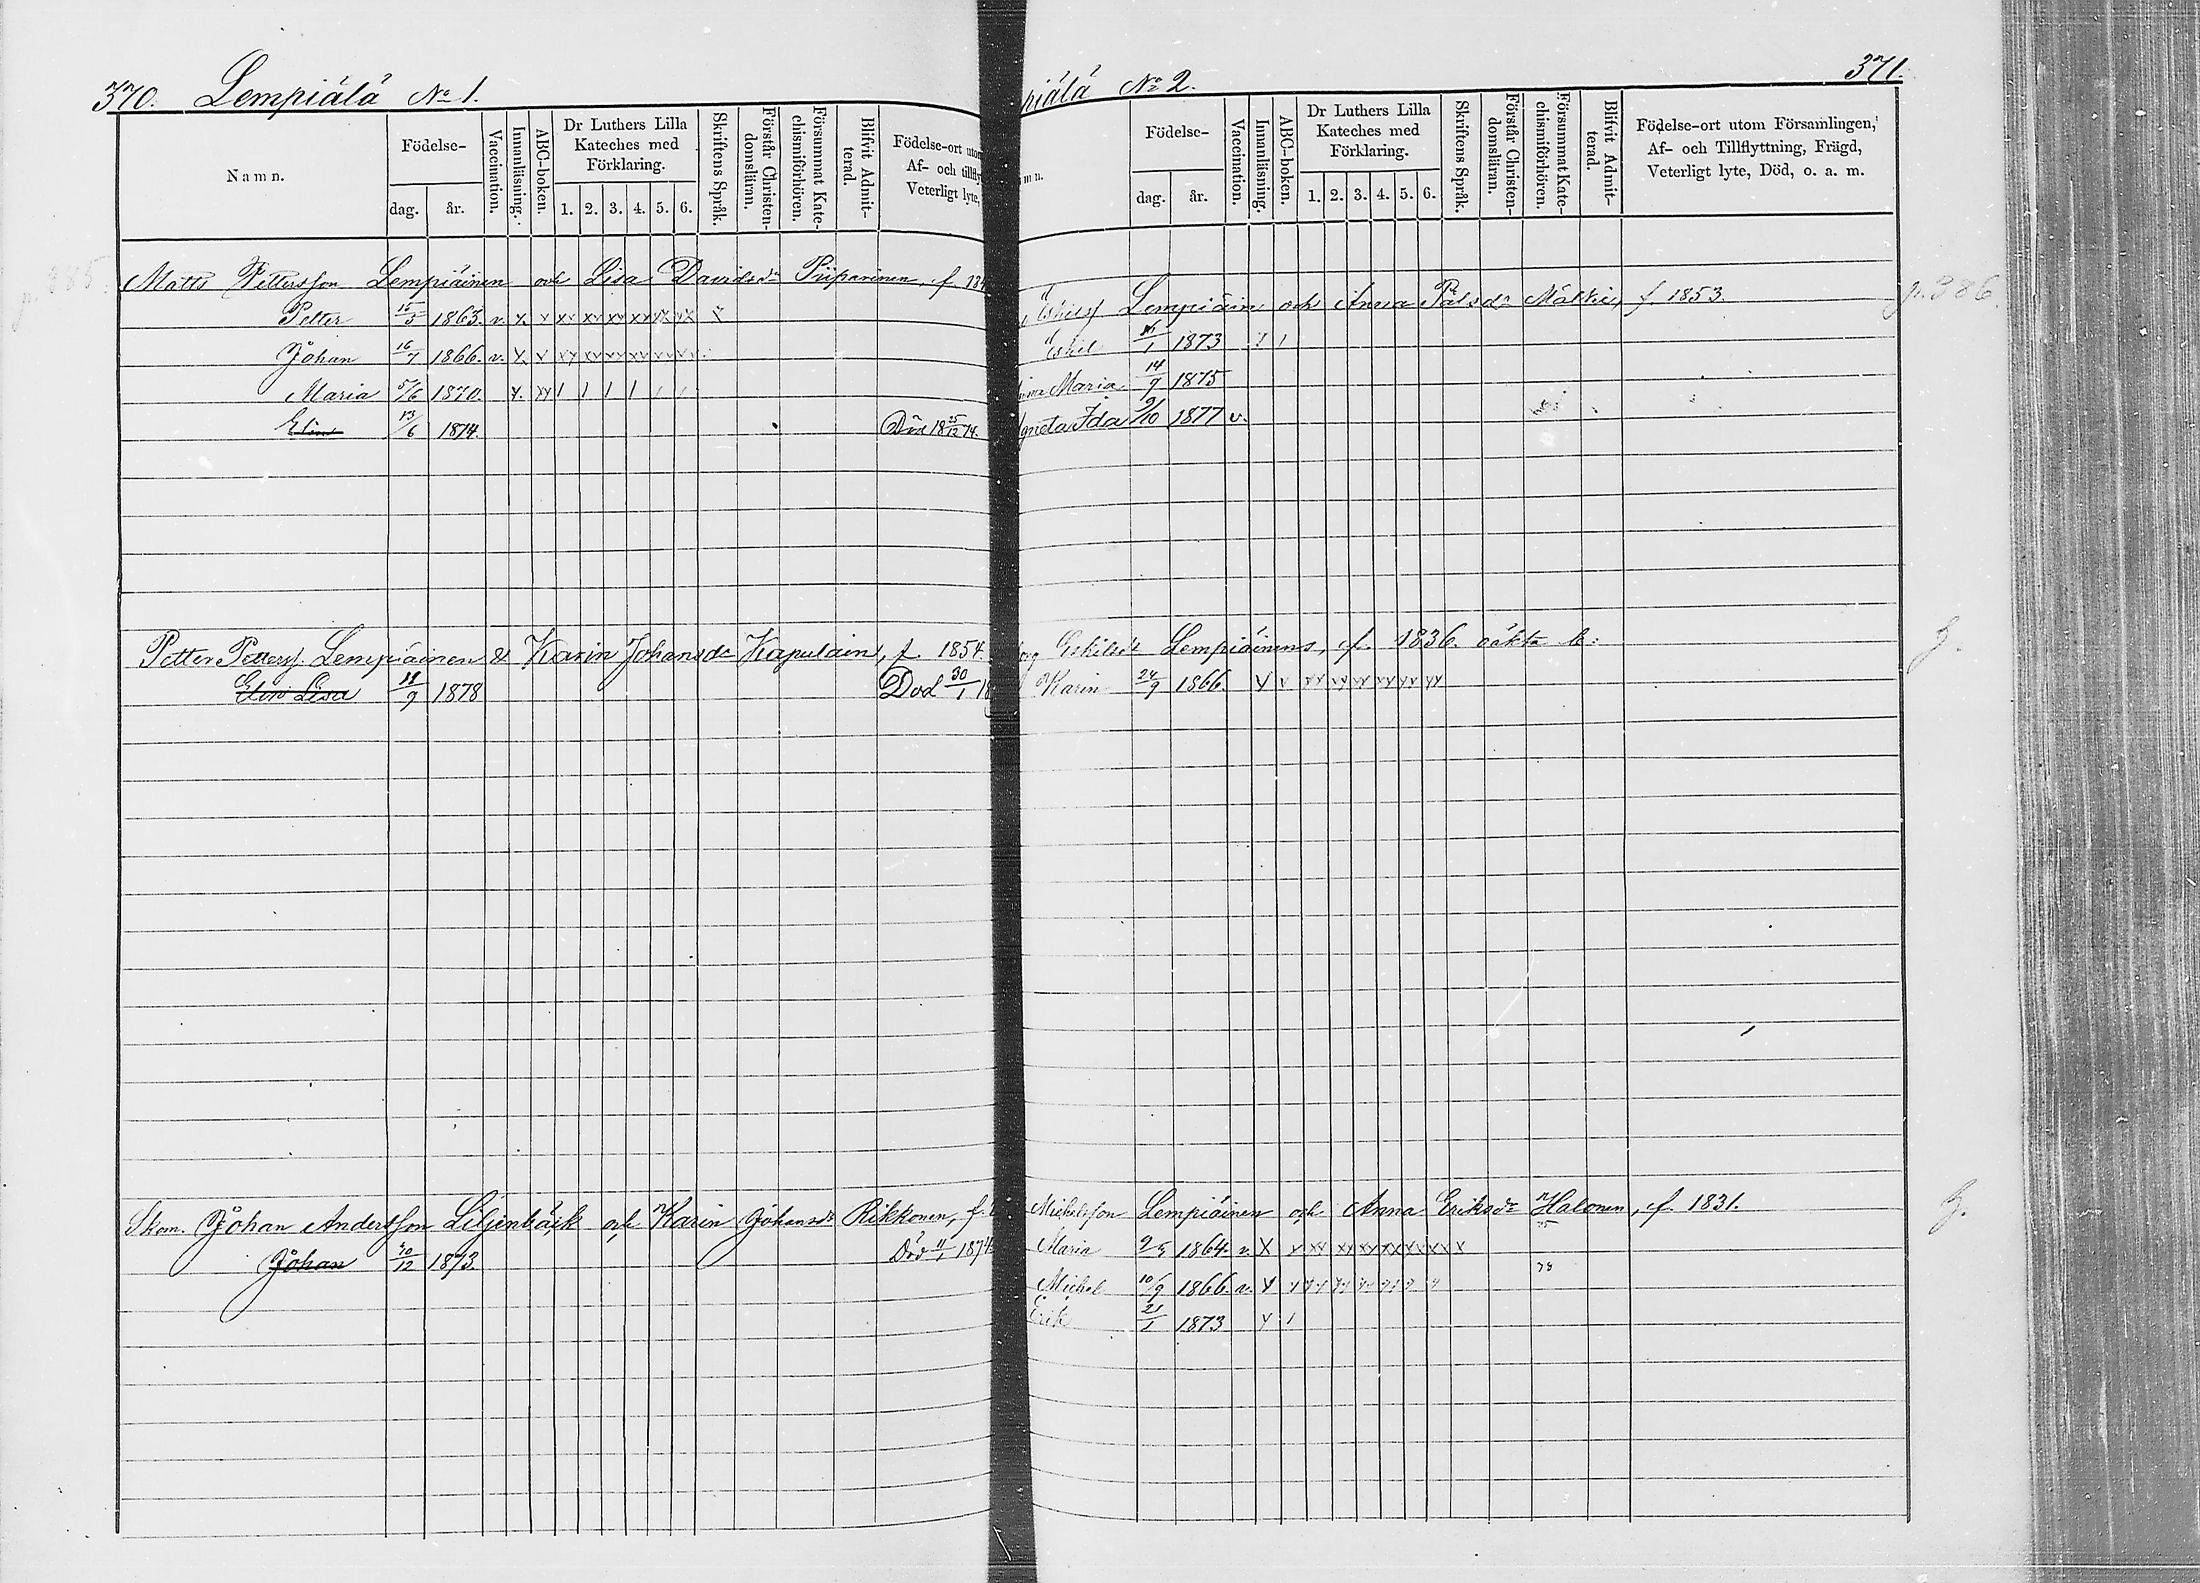 370. Lempiälä No 1.
Namn.
Födelse-
dag. år.
Vaccination.
Innanläsning.
ABC-boken.
Dr Luthers Lilla
Kateches med
Förklaring.
1. 2. 3. 4. 5. 6.
Skriftens Språk.
Förstår Christen-
domsläran.
Försummat Kate-
chismiförhören.
Blifvit Admit-
terad.
Födelse-ort utom
Af- och tillfly
Veterligt lyte,
p. 385.
Matts Pettersson Lempiäinen och Lisa Davidsdr Piiparinen, f. 184
Petter 15/5 1863. v. x. x xx xx xx xx xx xx x
Johan 16/7 1866. v. x. v xx xx xx xx xx xx
Maria 5/6 1870. x. xx 1 1 1 1 1 1
Elin 13/6 1874. Död 18 25/12 74.
Petter Petterss. Lempiäinen & Karin Johansdr Kapulain, f. 1854.
Elin Lisa 18/9 1878 Död 30/1 18
Skom. Johan Andersson Liljenbäck och Karin Johansdr Rikkonen, f.
Johan 30/12 1873. Död 11/1 1874.
piälä No 2. 371.
mn.
Födelse-
dag. år.
Vaccination.
Innanläsning.
ABC-boken.
Dr Luthers Lilla
Kateches med
Förklaring.
1. 2. 3. 4. 5. 6.
Skriftens Språk.
Förstår Christen-
domsläran.
Försummat Kate-
chismiförhören.
Blifvit Admit-
terad.
Födelse-ort utom Församlingen,
Af- och Tillflyttning, Frägd,
Veterligt lyte, Död, o. a. m.
Eskilss Lempiäin och Anna Pålsdr Mälkiä, f. 1853. p. 386.
Eskil 16/1 1873 1
Maria 14/9 1875
gneta Ida 9/10 1877 v.
org Eskilsdr Lempiäinens, f. 1836. oäkta b:
Karin 24/9 1866 x v xx xx xx xx xx xx
Michelsson Lempiäinen och Anna Eriksdr Halonen, f. 1831.
Maria 2/5 1864. v. x x xx xx xx xx xx xx x 75
Michel 10/9 1866. v. x 78
Erik 21/1 1873 x 1